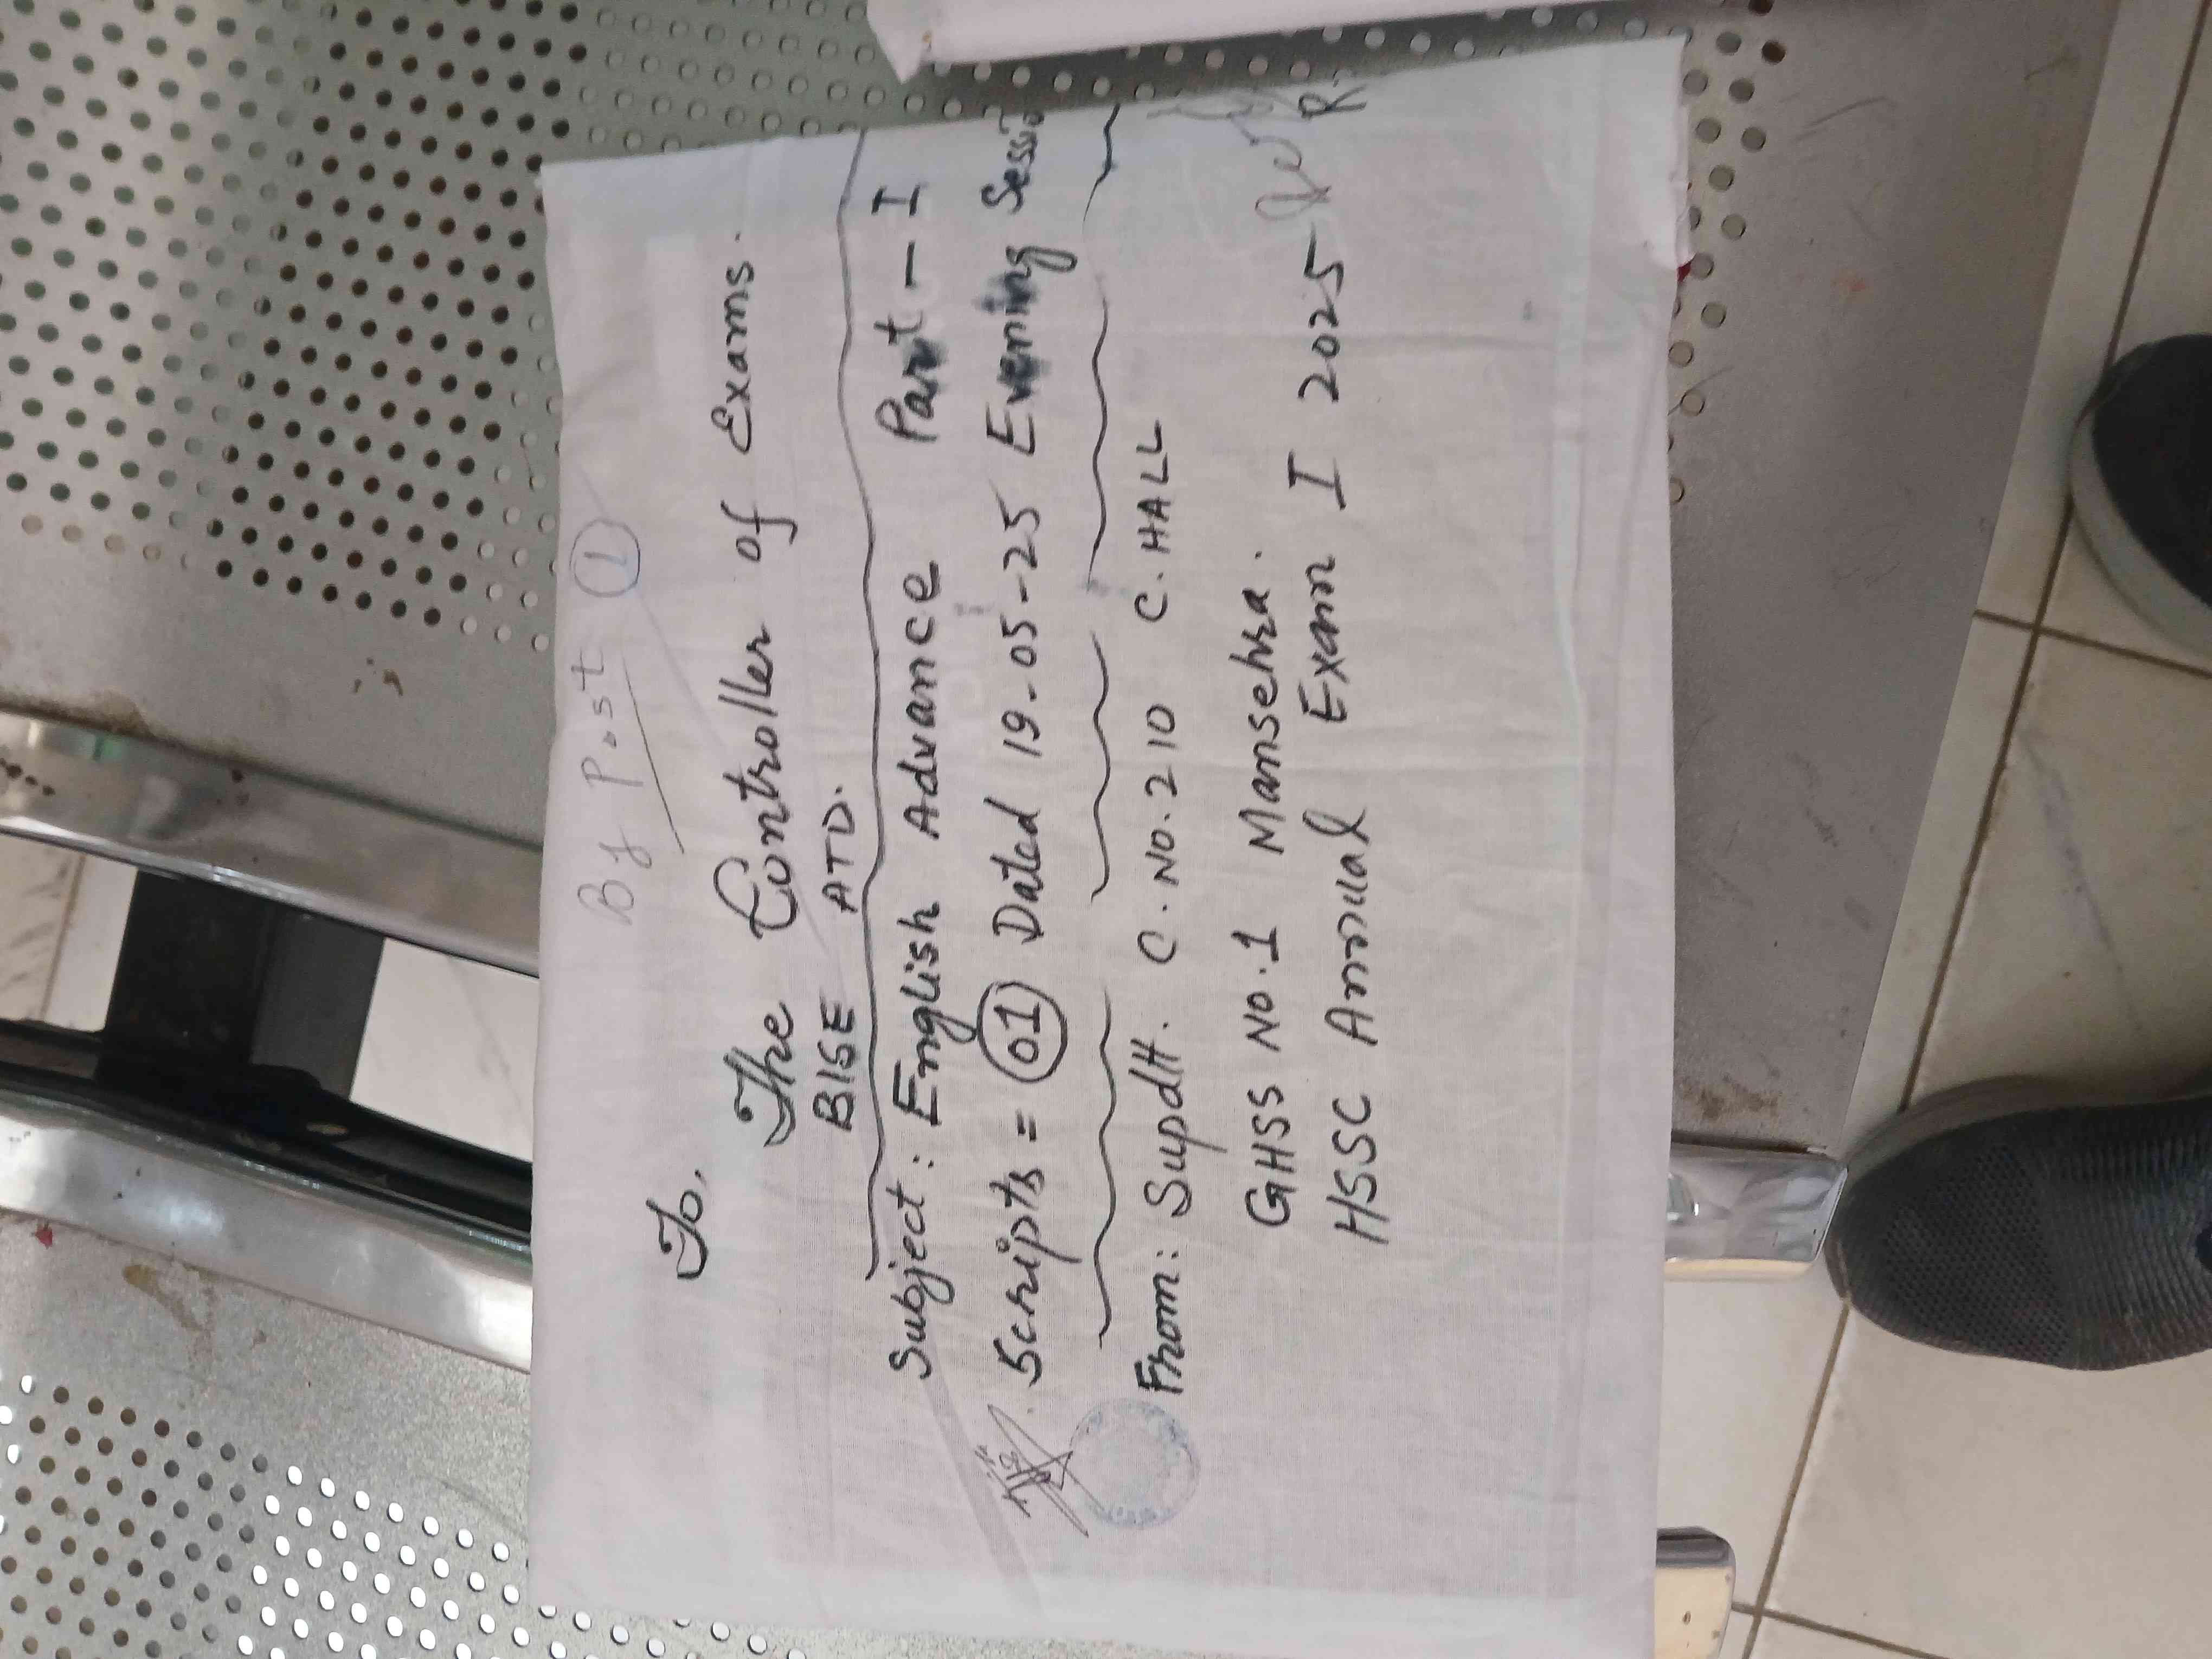 By Post 1
To,
The Controller of Exams.
BISE ATD.
Subject: English Advance Part - I
Scripts = 01 Dated 19-05-25 Evening Sessio
From: Supdtt. C. No. 210 C. HALL
GHSS No. 1 Mansehra.
HSSC Annual Exam I 2025